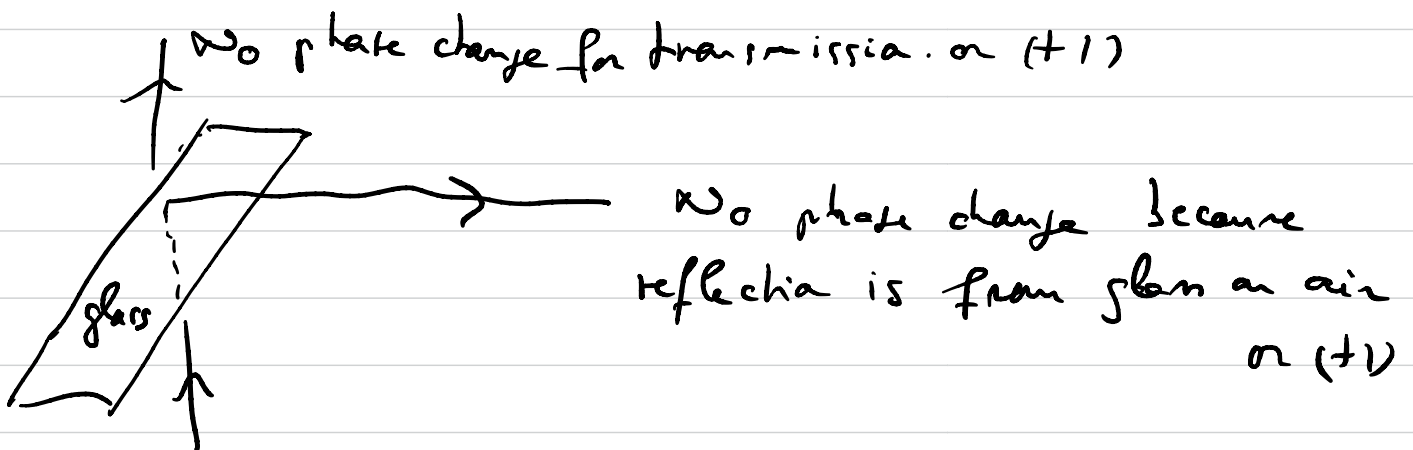 No phase change for transmission. or (+1)
No phase change because
reflection is from glass on air
or (+1)
glass